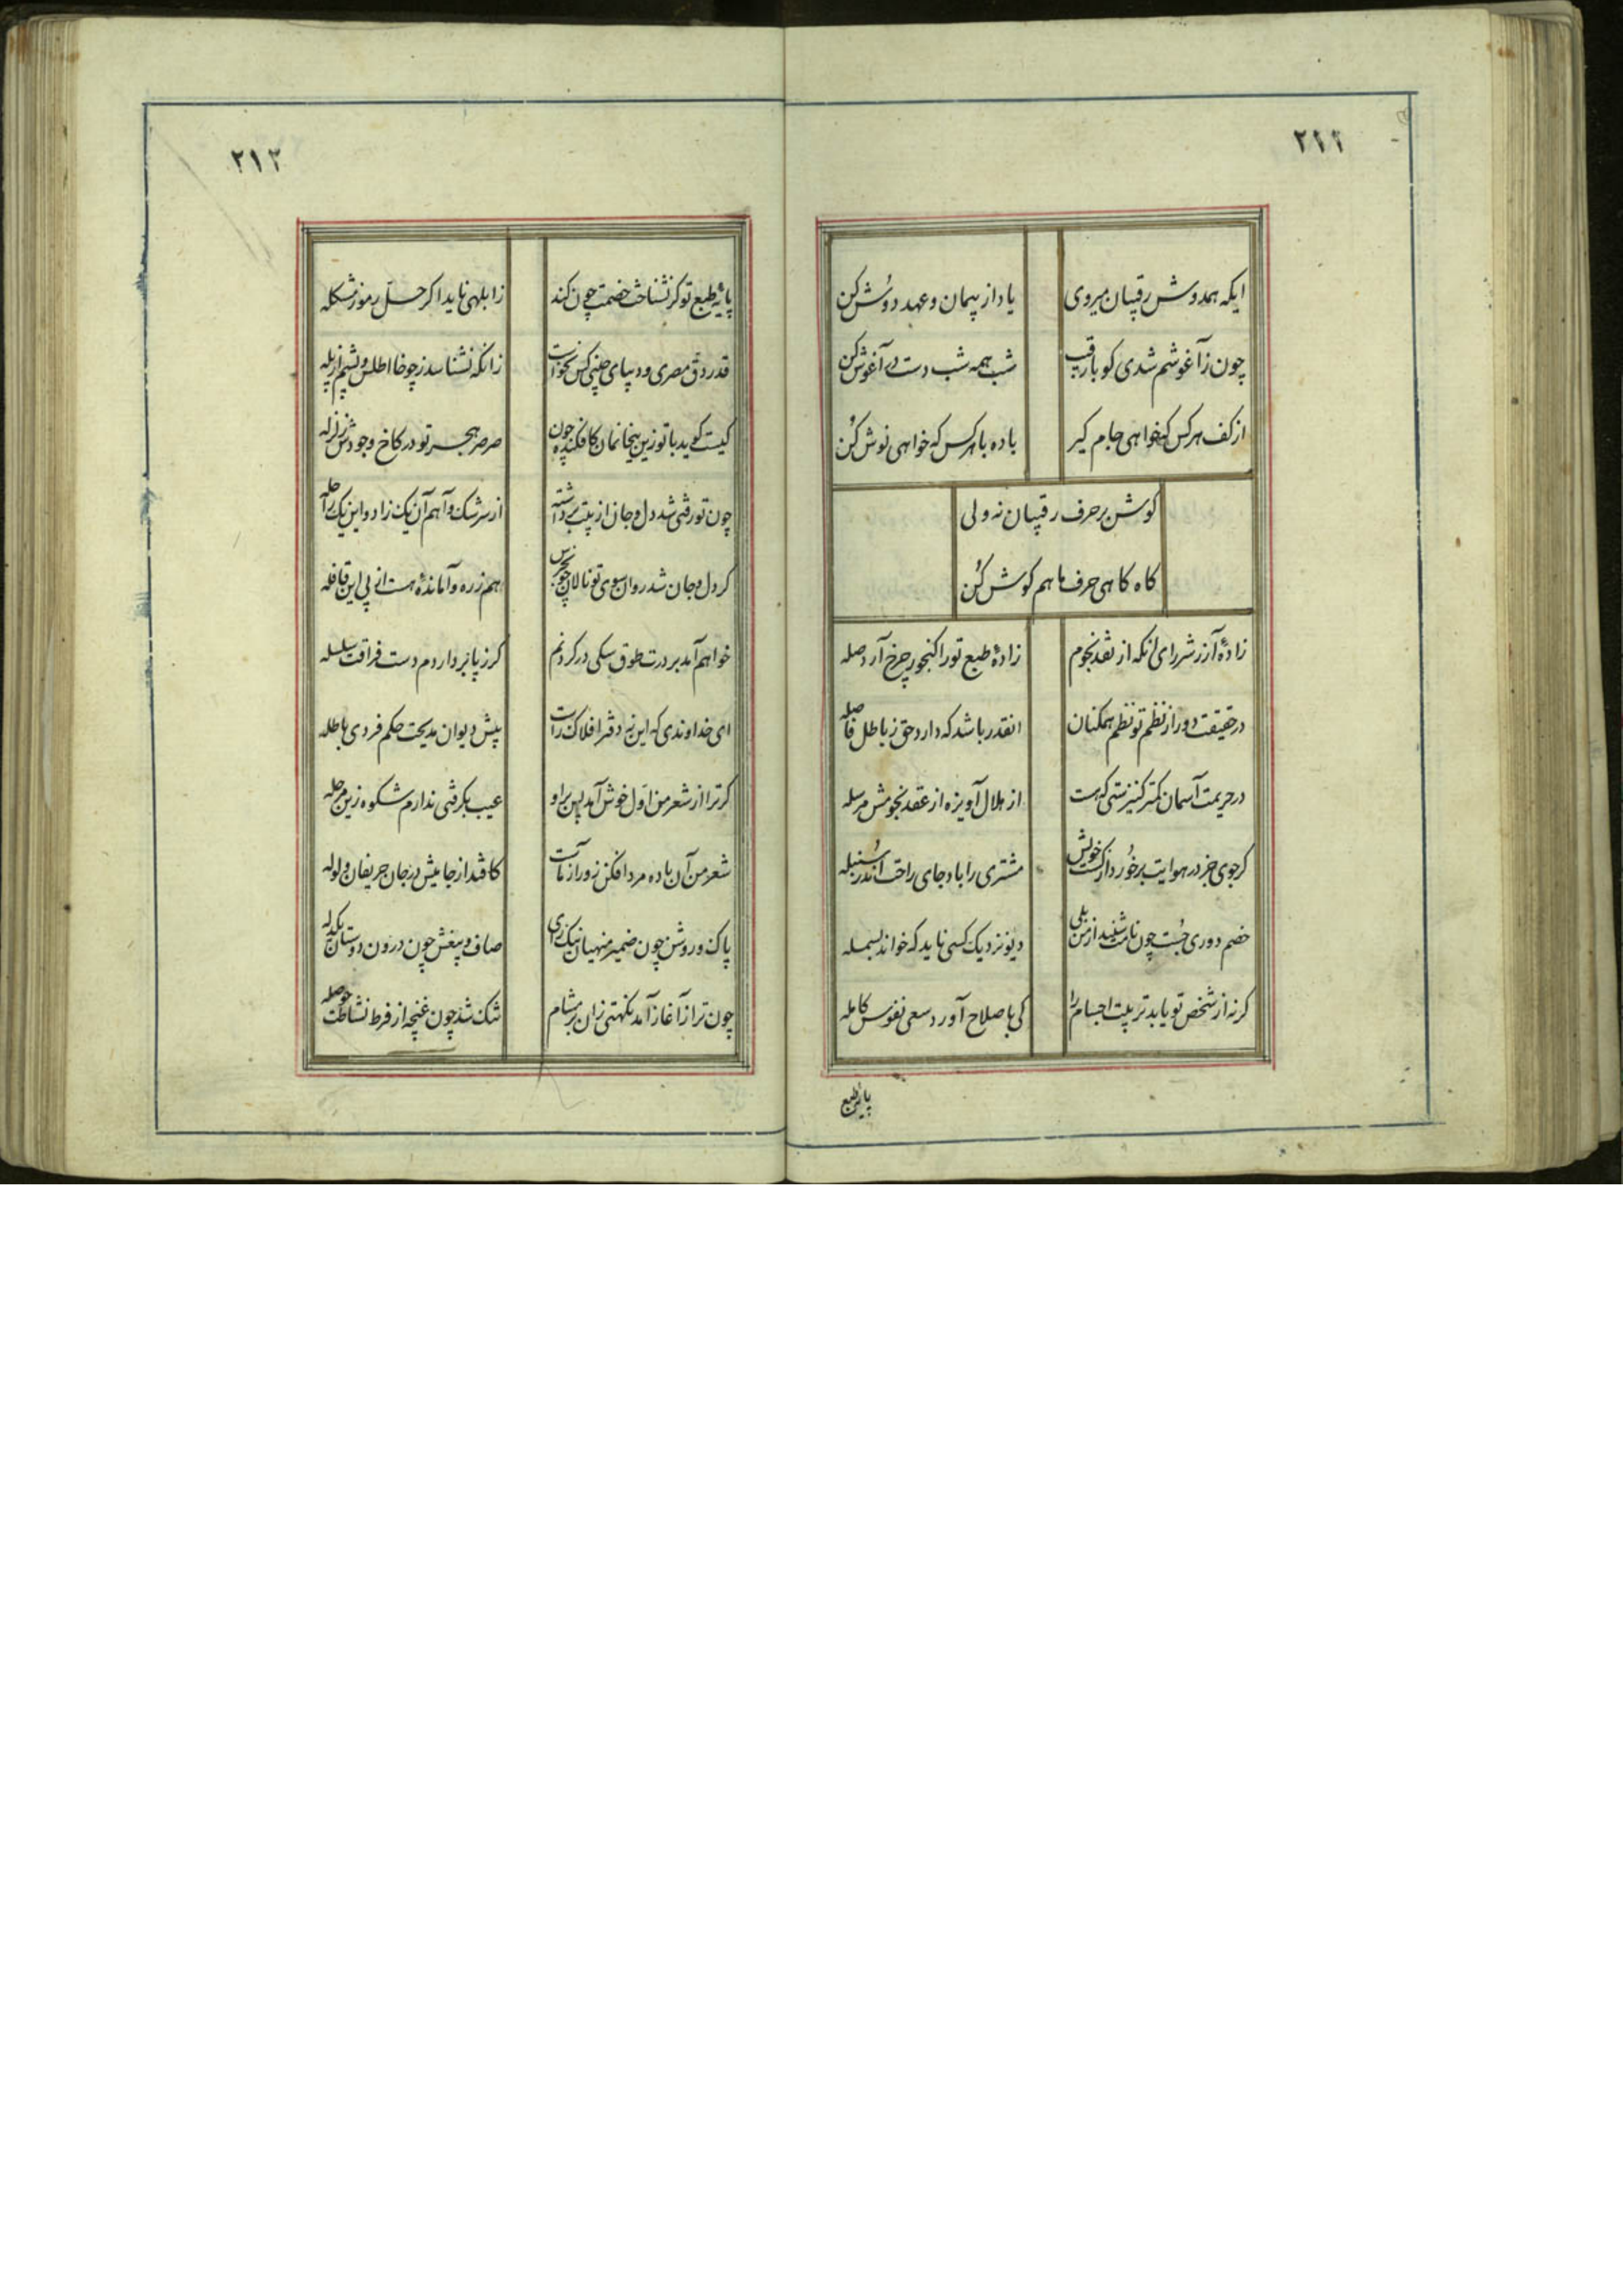 ۲۱۱
ایکه همدوش رقیبان میروی
یاد از پیمان و عهد دوش کن
چون ز آغوشم شدی کو با رقیب
شب همه شب دست در آغوش کن
از کف هر کس که خواهی جام کیر
باده با هر کس که خواهی نوش کن
کوش بر حرف رقیبان نه ولی
کاه کاهی حرف ما هم کوش کن
زادهٔ آزر شررای انکه از نقد نجوم
زادهٔ طبع تو را کنجور چرخ آرد صله
در حقیقت دور از نظم تو نظم همکنان
انقدر باشد که دارد حق ز باطل فاصله
در حریمت آسمان کمتر کنیزستی که هست
از هلال آویزه از عقد نجومش مرسله
کر جوی جز در هوایت بر خورد از کشت خویش
مشتری را باد جای راحت اندر سنبله
خصم دوری جست چون نامت شنید از من بلی
دیو نزدیک کسی ناید که خواند بسمله
کر نه از شخص تو یابد تربیت اجسام را
کی باصلاح آورد سعی نفوس کامله
پایهٔ طبع
۲۱۲
پایهٔ طبع تو کر نشناخت خصمت چون کند
ز ابلهی ناید اکر حل رموز مشکله
قدر دق مصری و دیبای چینی کس نخواست
زانکه نشناسد ز چوخا اطلس و پشم از پله
کیست کوید با تو زین بیخانمان کافکنده چون
صرصر هجر تو در کاخ وجودش زلزله
چون تو رفتی شد دل و جان از پیت برداشته
از سرشک و آهم آن یک زاد و این یک راحله
کر دل و جان شد روان سوی تو نالان چون جرس
هم ز ره وامانده هست از پی این قافله
خواهم آمد بر درت طوق سکی در کردنم
کر ز پا بردارد م دست فراقت سلسله
ای خداوندی که این نه دفتر افلاک راست
پیش دیوان مدیحت حکم فردی باطله
کر ترا از شعر من اول خوش آمد پس بر او
عیب بکرفتی ندارم شکوه زین مرحله
شعر من آن باده مرد افکن زورآزماست
کافتد از جامیش در جان حریفان ولوله
پاک و روشن چون ضمیر منهیان نیک رای
صاف و بیغش چون درون دوستان یکدله
چون ترا ز آغاز آمد نکهتی زان بر مشام
تنک شد چون غنچه از فرط نشاطت حوصله